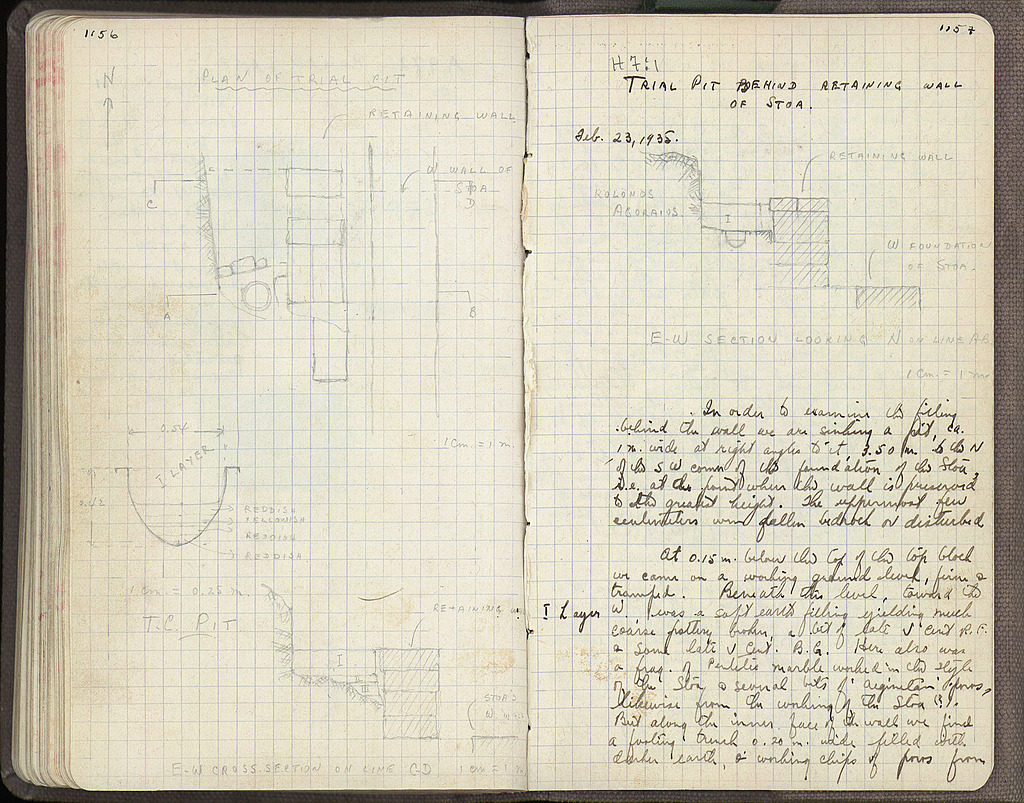 1156
N
PLAN OF TRIAL PIT
RETAINING WALL
W WALL OF
STOA
C
D
A
B
1 cm. = 1 m.
0.54
I LAYER
REDDISH
YELLOWISH
REDDISH
REDDISH
1 cm. = 0.25 m.
T.C. PIT
RETAINING W
I
II
STOA'S
W. WALL
E-W CROSS-SECTION ON LINE CD 1 cm = 1 m
1157
H 7:1
TRIAL PIT BEHIND RETAINING WALL
OF STOA.
Feb. 23, 1935.
RETAINING WALL
KOLONOS
AGORAIOS
I
W FOUNDATION
OF STOA.
E-W SECTION LOOKING N ON LINE AB
1 cm. = 1 m
In order to examine the filling
behind the wall we are sinking a pit, ca.
1 m. wide at right angles to it, 3.50 m. to the N
of the SW corner of the foundation of the Stoa,
i.e. at the point where the wall is preserved
to the greatest height. The uppermost few
centimeters were fallen bedrock or disturbed
At 0.15 m. below the top of the top block
we came on a working ground level, firm &
tramped. Beneath this level, toward the
I Layer W. was a soft earth filling yielding much
coarse pottery broken, a bit of late V cent R.F.
& some late V cent. B.G. Here also was
a frag. of Pentelic marble worked in the style
of the Stoa & several bits of Aeginetan poros,
likewise from the working of the Stoa (?).
But along the inner face of the wall we find
a footing trench 0.20 m. wide filled with
darker earth, & working chips of poros from